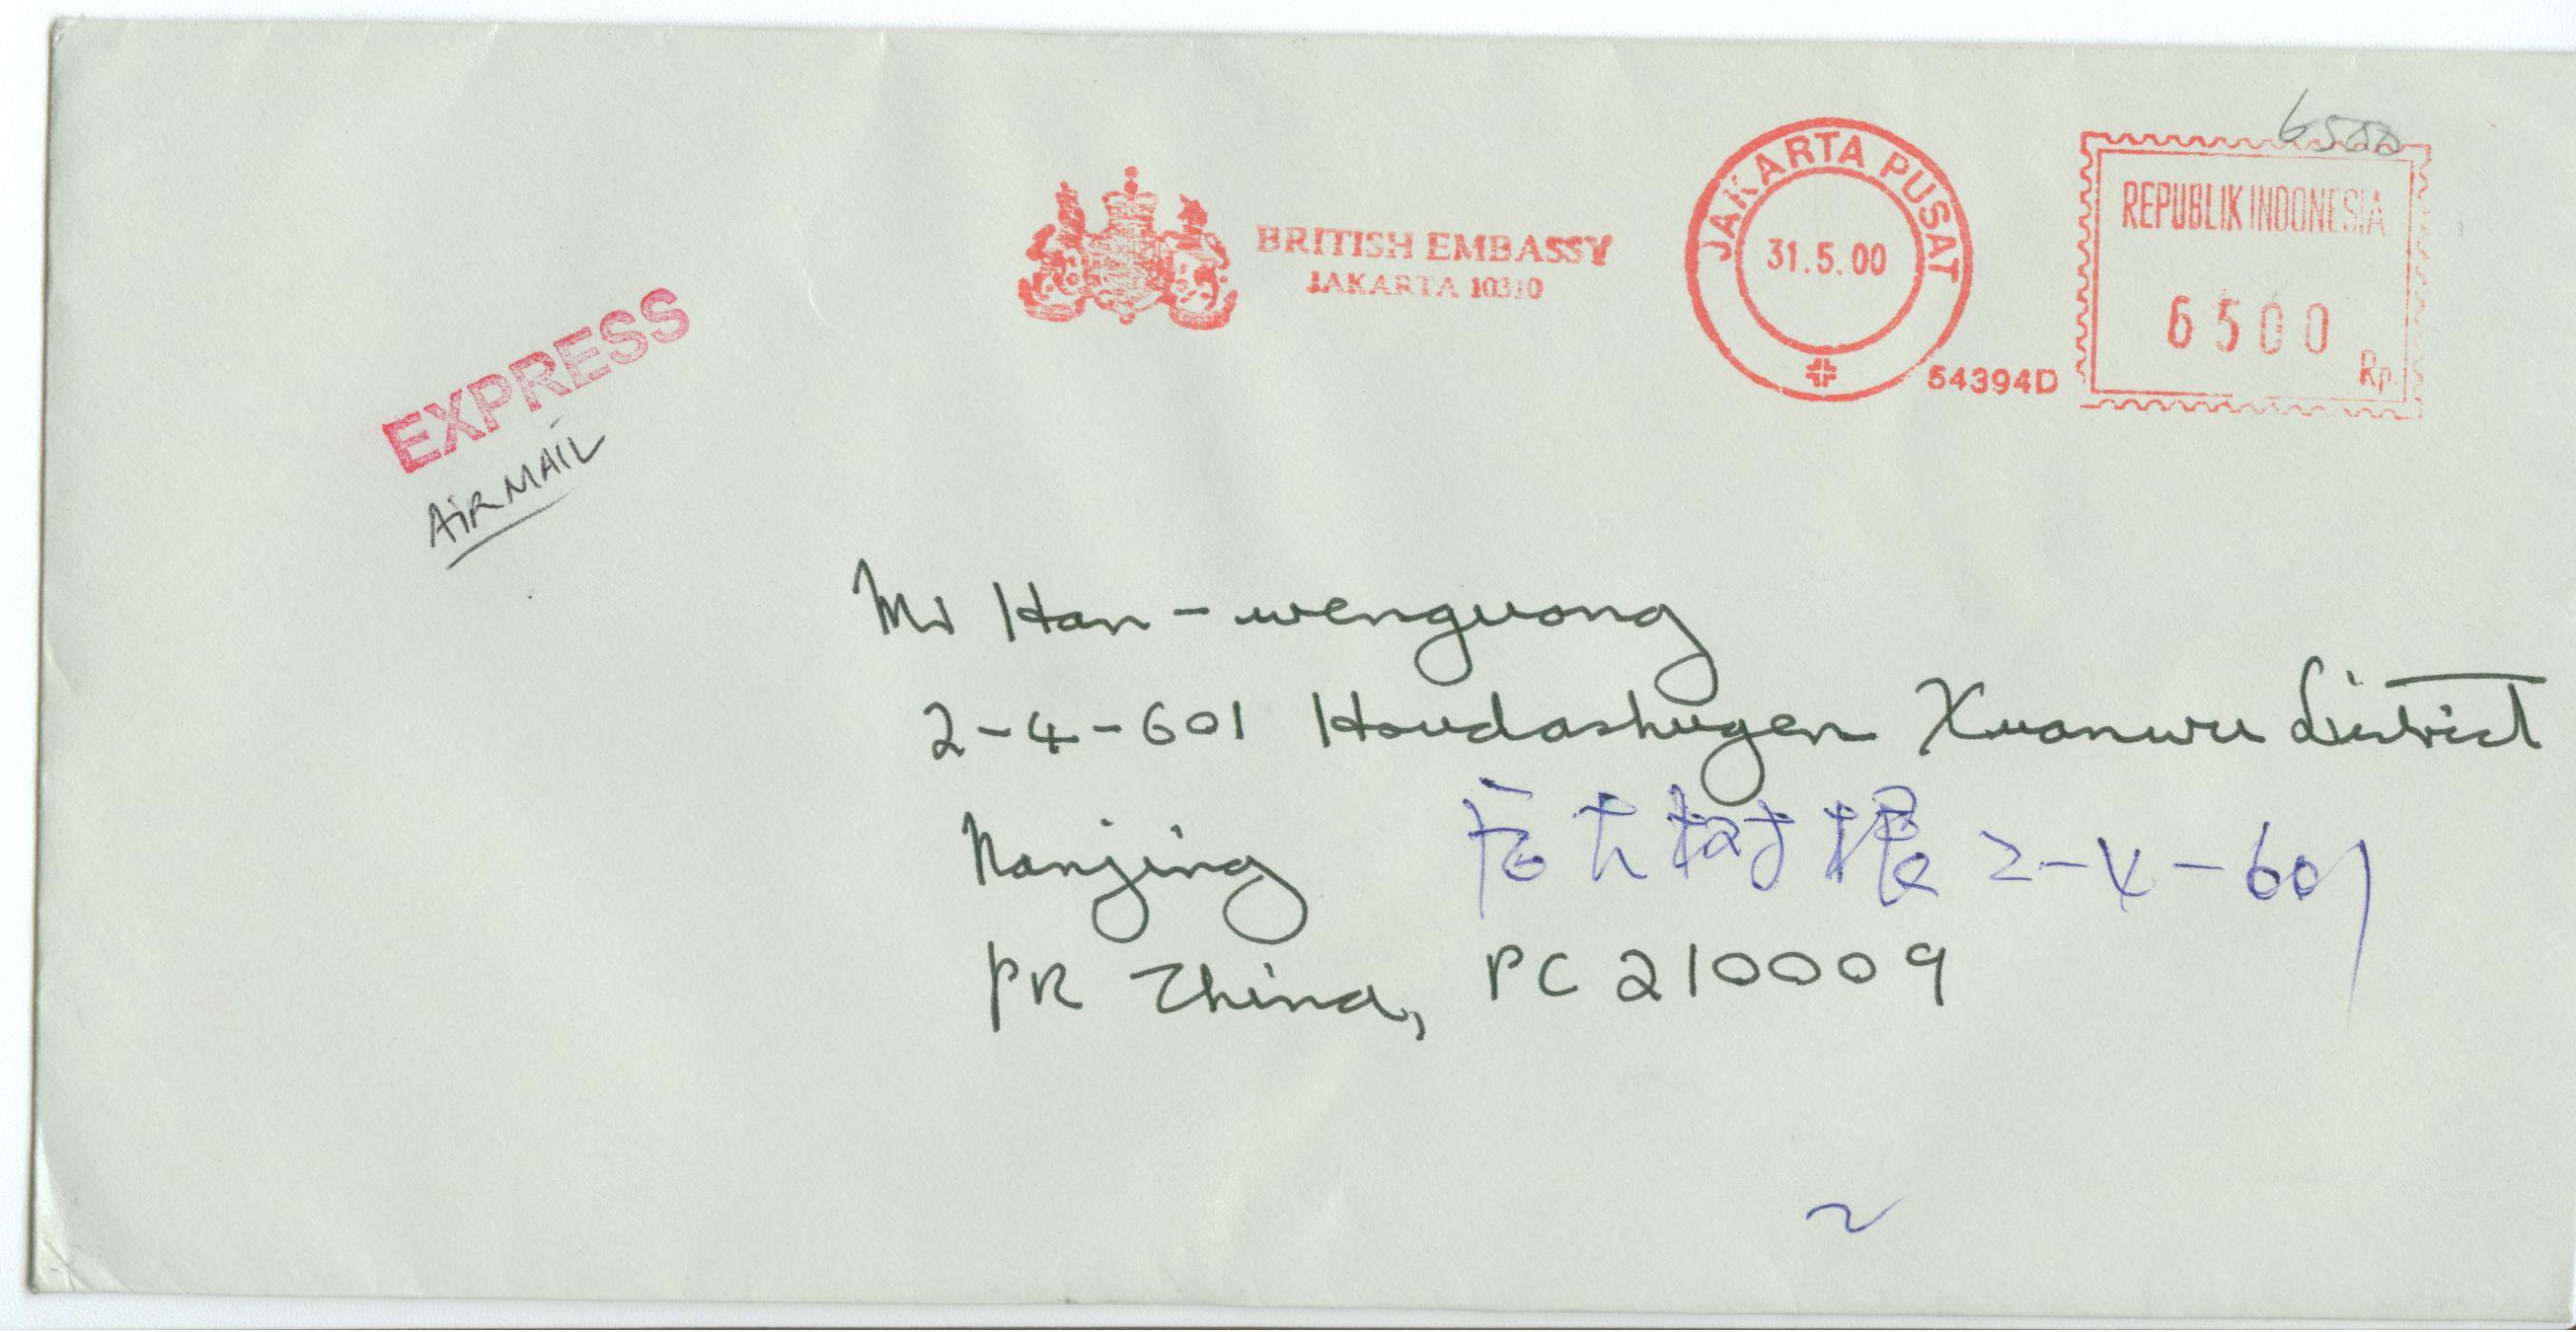 6500
BRITISH EMBASSY
JAKARTA 10310
JAKARTA PUSAT
31.5.00
54394D
REPUBLIK INDONESIA
6500
Rp.
EXPRESS
AIRMAIL
Mr Han-wenguong
2-4-601 Houdashugen Xuanwu District
Nanjing
后大树根 2-4-601
PR China, PC 210009